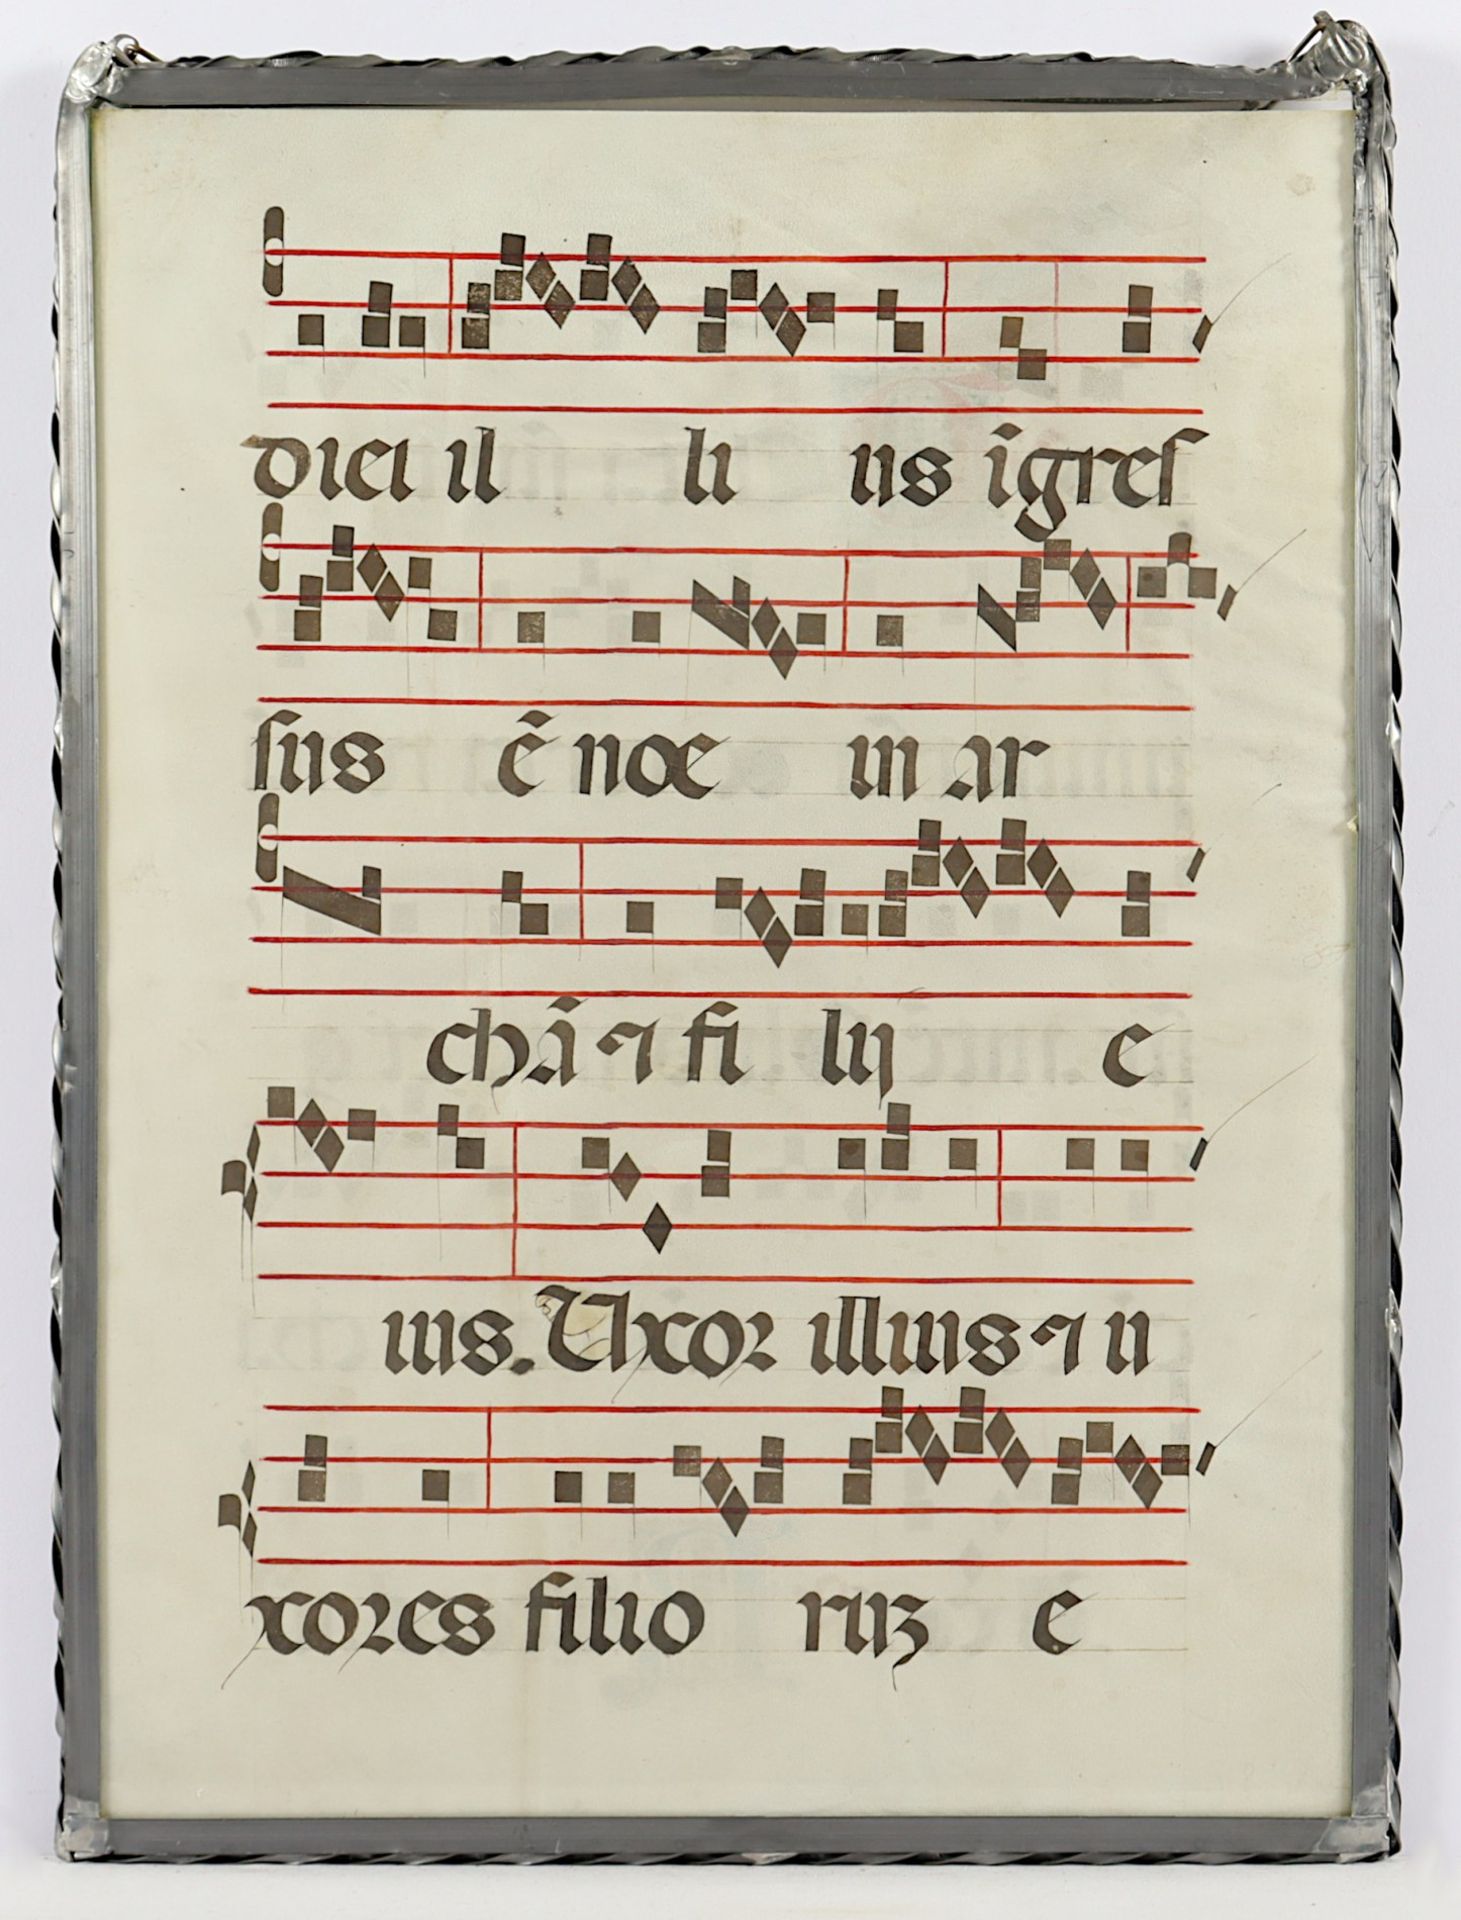 diei il li us īgreſ
ſus ē noe in ar
chā ⁊ fi lij e
ius. Uxor illius ⁊ u
xores filio ruꝫ e